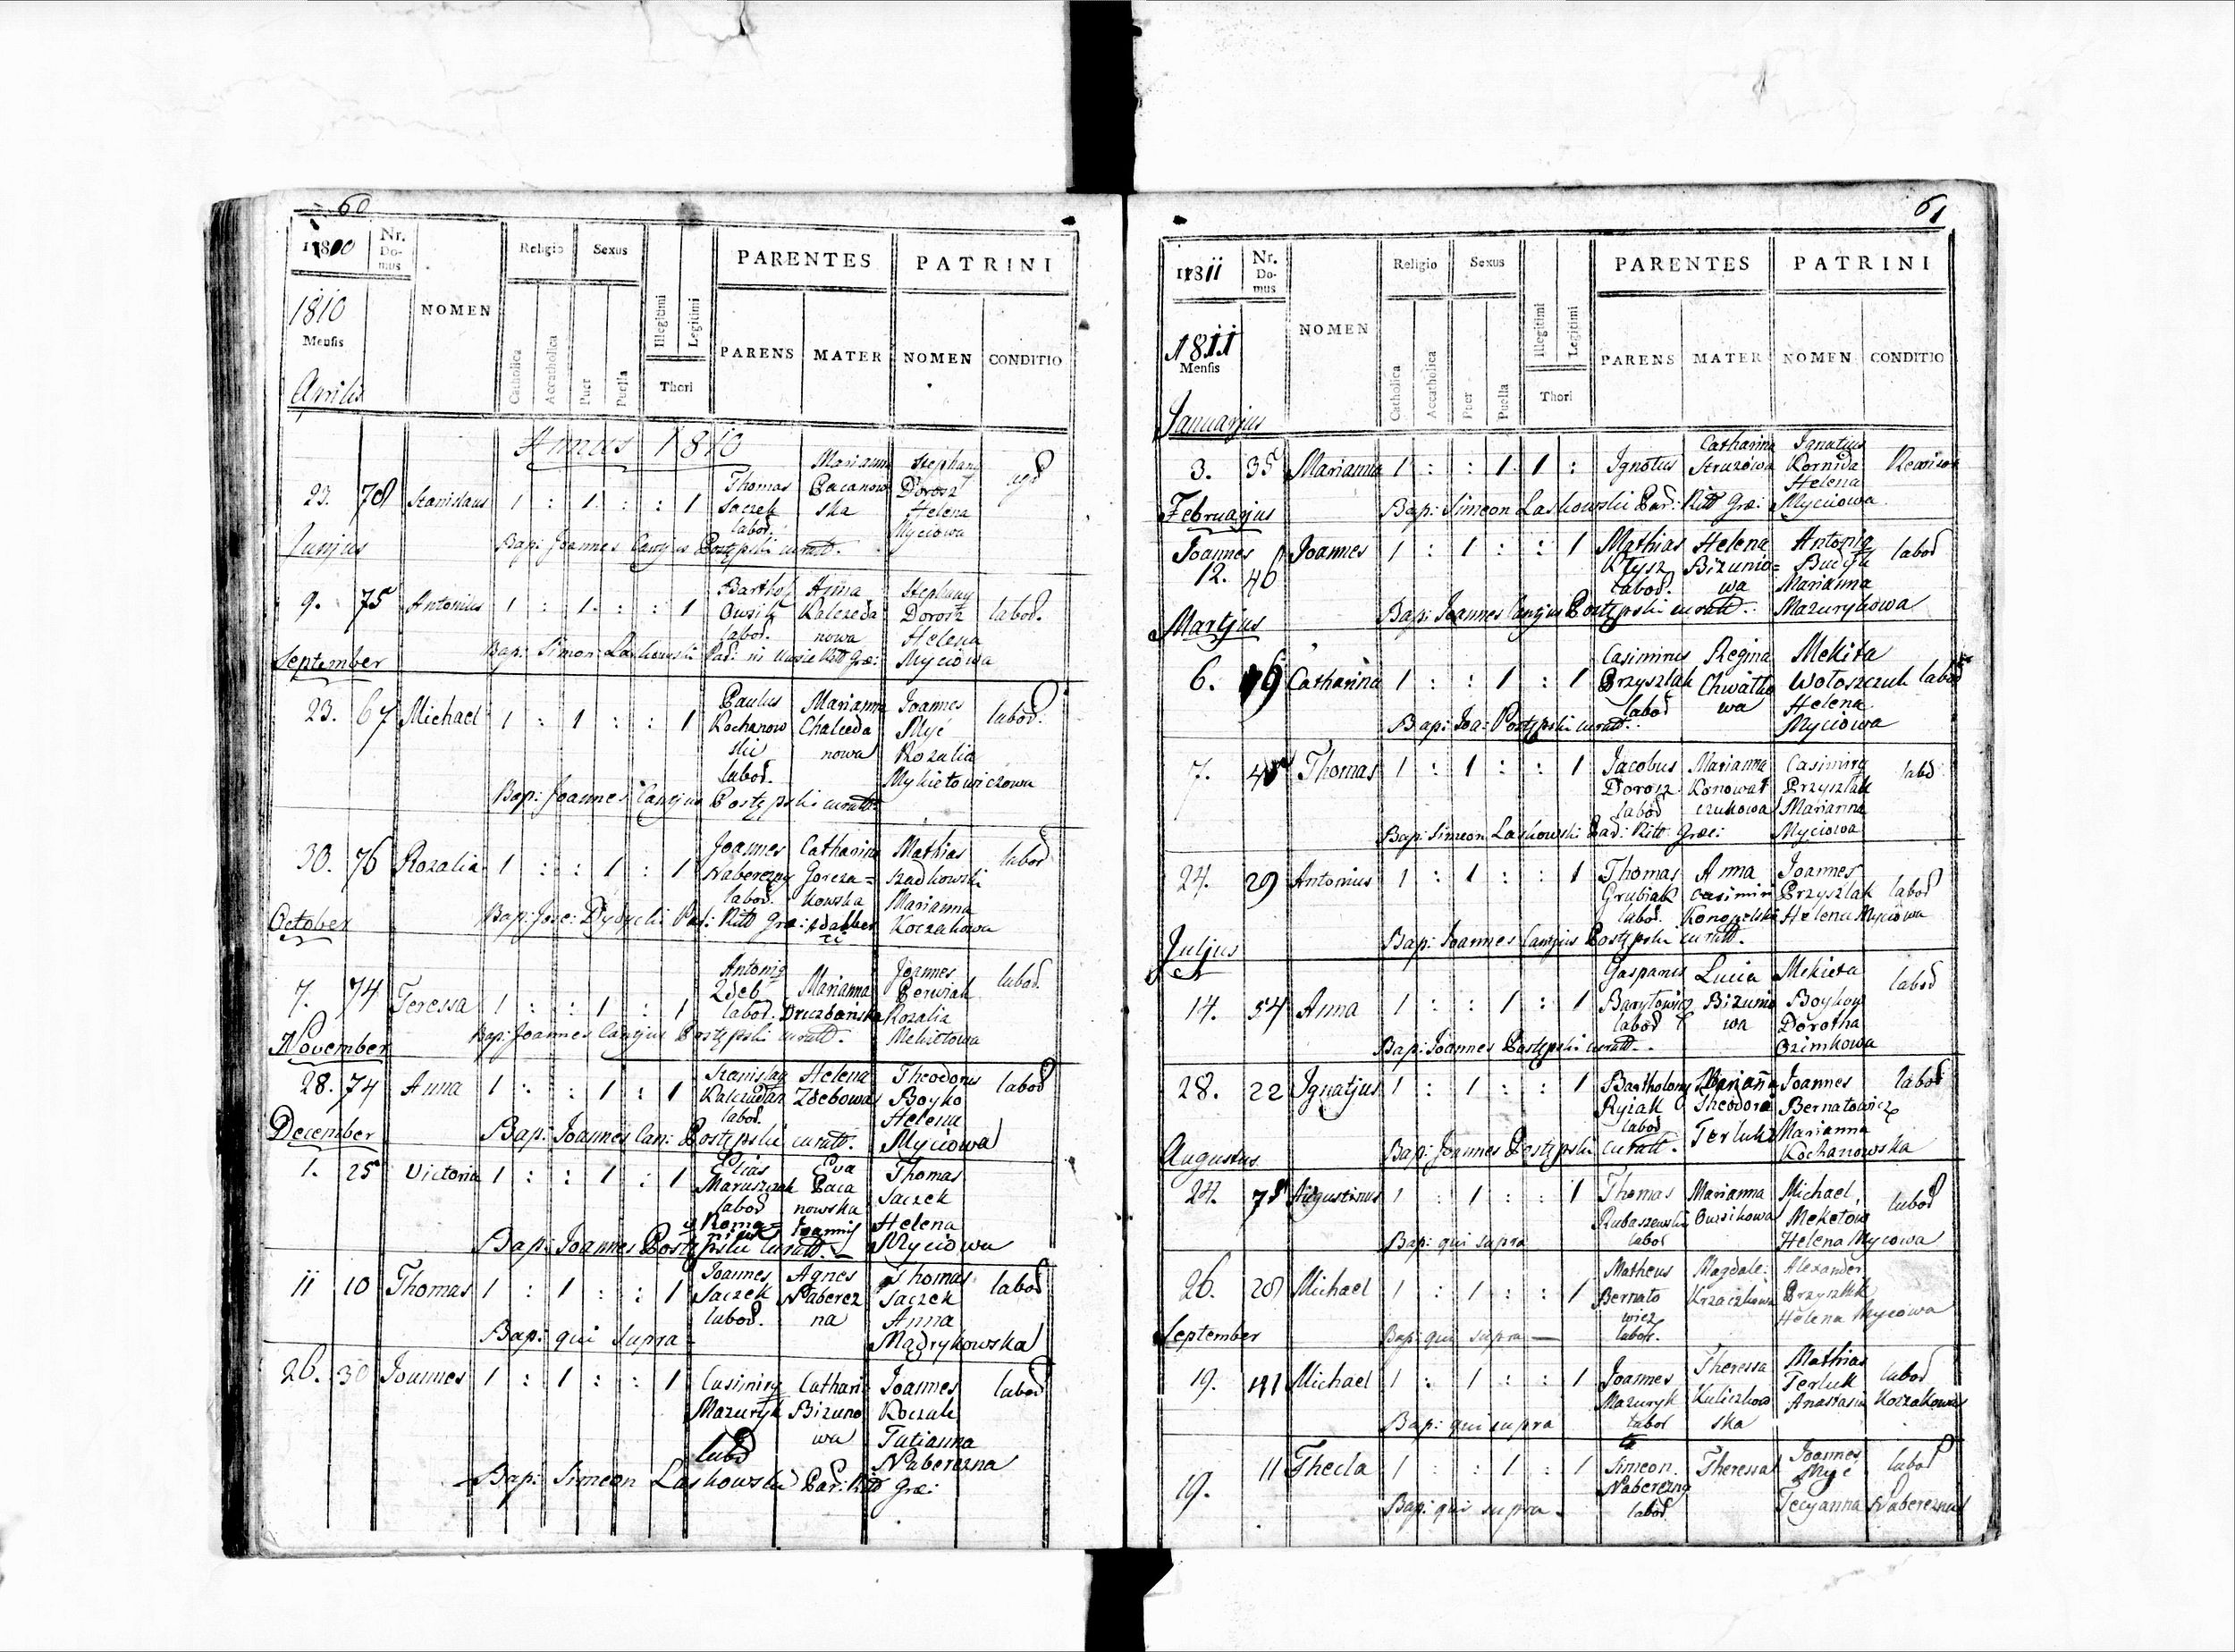 60
1800
Nr. Domus
NOMEN
Religio
Sexus
PARENTES
PATRINI
1810
Mensis
Catholica
Accatholica
Puer
Puella
Illegitimi
Legitimi
Thori
PARENS
MATER
NOMEN
CONDITIO
Aprilis
Annus 1810
23. 78 Stanislaus 1 : 1 : : 1
Thomas Saczek labod.
Marianna Pacanowska
Stephany Dorosz Helena Myciowa
Bap: Joannes Cantjus Postępski curatt.
Junjus
9. 75 Antonius 1 : 1 : : 1
Barthol Owsik labod.
Anna Kalczedanowa
Stephany Dorosz Helena Myciowa
labod.
Bap: Simon Laskowski Par: Ritt Græ:
September
23. 67 Michael 1 : 1 : : 1
Paulus Kochanowski labod.
Marianna Chalcedanowa
Joannes Myć Rozalia Mykietowiczowa
labod.
Bap: Joannes Cantjus Postępski curatt.
30. 76 Rozalia 1 : : 1 : 1
Joannes Naberezny labod.
Catharina Gorczakowska Adalberti
Mathias Szadkowski Marianna Koczakowa
labod
Bap: Jose: Dydycki Par: Ritt Græ:
October
7. 74 Teressa 1 : : 1 : 1
Antonig Zdeb labod.
Marianna Druczbańska
Joannes Perwiak Rozalia Mekietowa
labod.
Bap: Joannes Cantjus Postępski curatt.
November
28. 74 Anna 1 : : 1 : 1
Stanislag Kalczudan labod.
Helena Zdebowa
Theodorus Boyko Helena Myciowa
labod
Bap: Joannes Can: Postępski curatt.
December
1. 25 Victoria 1 : : 1 : 1
Elias Maruszczak labod
Eva Pacanowska Joannis
Thomas Saczek Helena Myciowa
Bap: Joannes Postępski curatt.
11 10 Thomas 1 : 1 : : 1
Joannes Saczek labod.
Agnes Naberezna
Thomas Saczek Anna Mądrykowska
labod
Bap: qui supra
26. 30 Joannes 1 : 1 : : 1
Casimirg Mazuryk labod
Cathari Bizunowa
Joannes Koczak Tatianna Naberezna
labod
Bap: Simeon Laskowski Par: Ritt Græ:
61
1811
Nr. Domus
NOMEN
Religio
Sexus
PARENTES
PATRINI
1811
Mensis
Catholica
Accatholica
Puer
Puella
Illegitimi
Legitimi
Thori
PARENS
MATER
NOMEN
CONDITIO
Januarjus
3. 35 Marianna 1 : : 1 1 :
Ignotus
Catharina Struzowa
Ignatius Kornida Helena Myciowa
Bap: Simeon Laskowski Par: Ritt Græ:
Februarjus
Joannes
12. 40 Joannes 1 : 1 : : 1
Mathias Klysz labod.
Helena Bizuniowa
Antonig Budys Marianna Mazurykowa
labod
Bap: Joannes Cantjus Postępski curatt.
Martjus
6. 69 Catharina 1 : : 1 : 1
Casimirus Przyszlak labod
Regina Chwatkowa
Mekita Wołoszczuk Helena Myciowa
labod
Bap: Joa: Postępski curatt.
7. 45 Thomas 1 : 1 : : 1
Jacobus Dorosz labod
Marianna Konowałczukowa
Casimirg Przyszlak Marianna Myciowa
labd
Bap: Simeon Laskowski Par: Ritt: Græc:
24. 29 Antonius 1 : 1 : : 1
Thomas Grubiak labod.
Anna Casimiri Konopelski
Joannes Przyszlak Helena Myciowa
labod
Bap: Joannes Cantjus Postępski curatt.
Juljus
14. 54 Anna 1 : : 1 : 1
Gasparus Baryłowicz labod
Lucia Bizuniowa
Mekieta Boykow Dorotha Ozimkowa
labod
Bap: Joannes Postępski curatt.
28. 22 Ignatjus 1 : 1 : : 1
Bartholomg Ryzak labod
Marianna Theodori Terluk
Joannes Bernatowicz Marianna Kochanowska
labod
Bap: Joannes Postępski curatt.
Augustus
24. 75 Augustinus 1 : 1 : : 1
Thomas Rubaszewski labod
Marianna Owsikowa
Michael Meketow Helena Mycowa
labod
Bap: qui supra
26. 28 Michael 1 : 1 : : 1
Matheus Bernatowicz labor.
Magdale: Krzaczkowa
Alexander Przyszlak Helena Myciowa
Bap: qui supra
September
19. 41 Michael 1 : 1 : : 1
Joannes Mazuryk labor
Theressa Kuliczkowska
Mathias Terluk Anastasia Koczakowa
labod
Bap: qui supra
19. 11 Thecla 1 : : 1 : 1
Simeon Naberezny labod
Theressa
Joannes Myć Tecyanna Naberezna
labod
Bap: qui supra